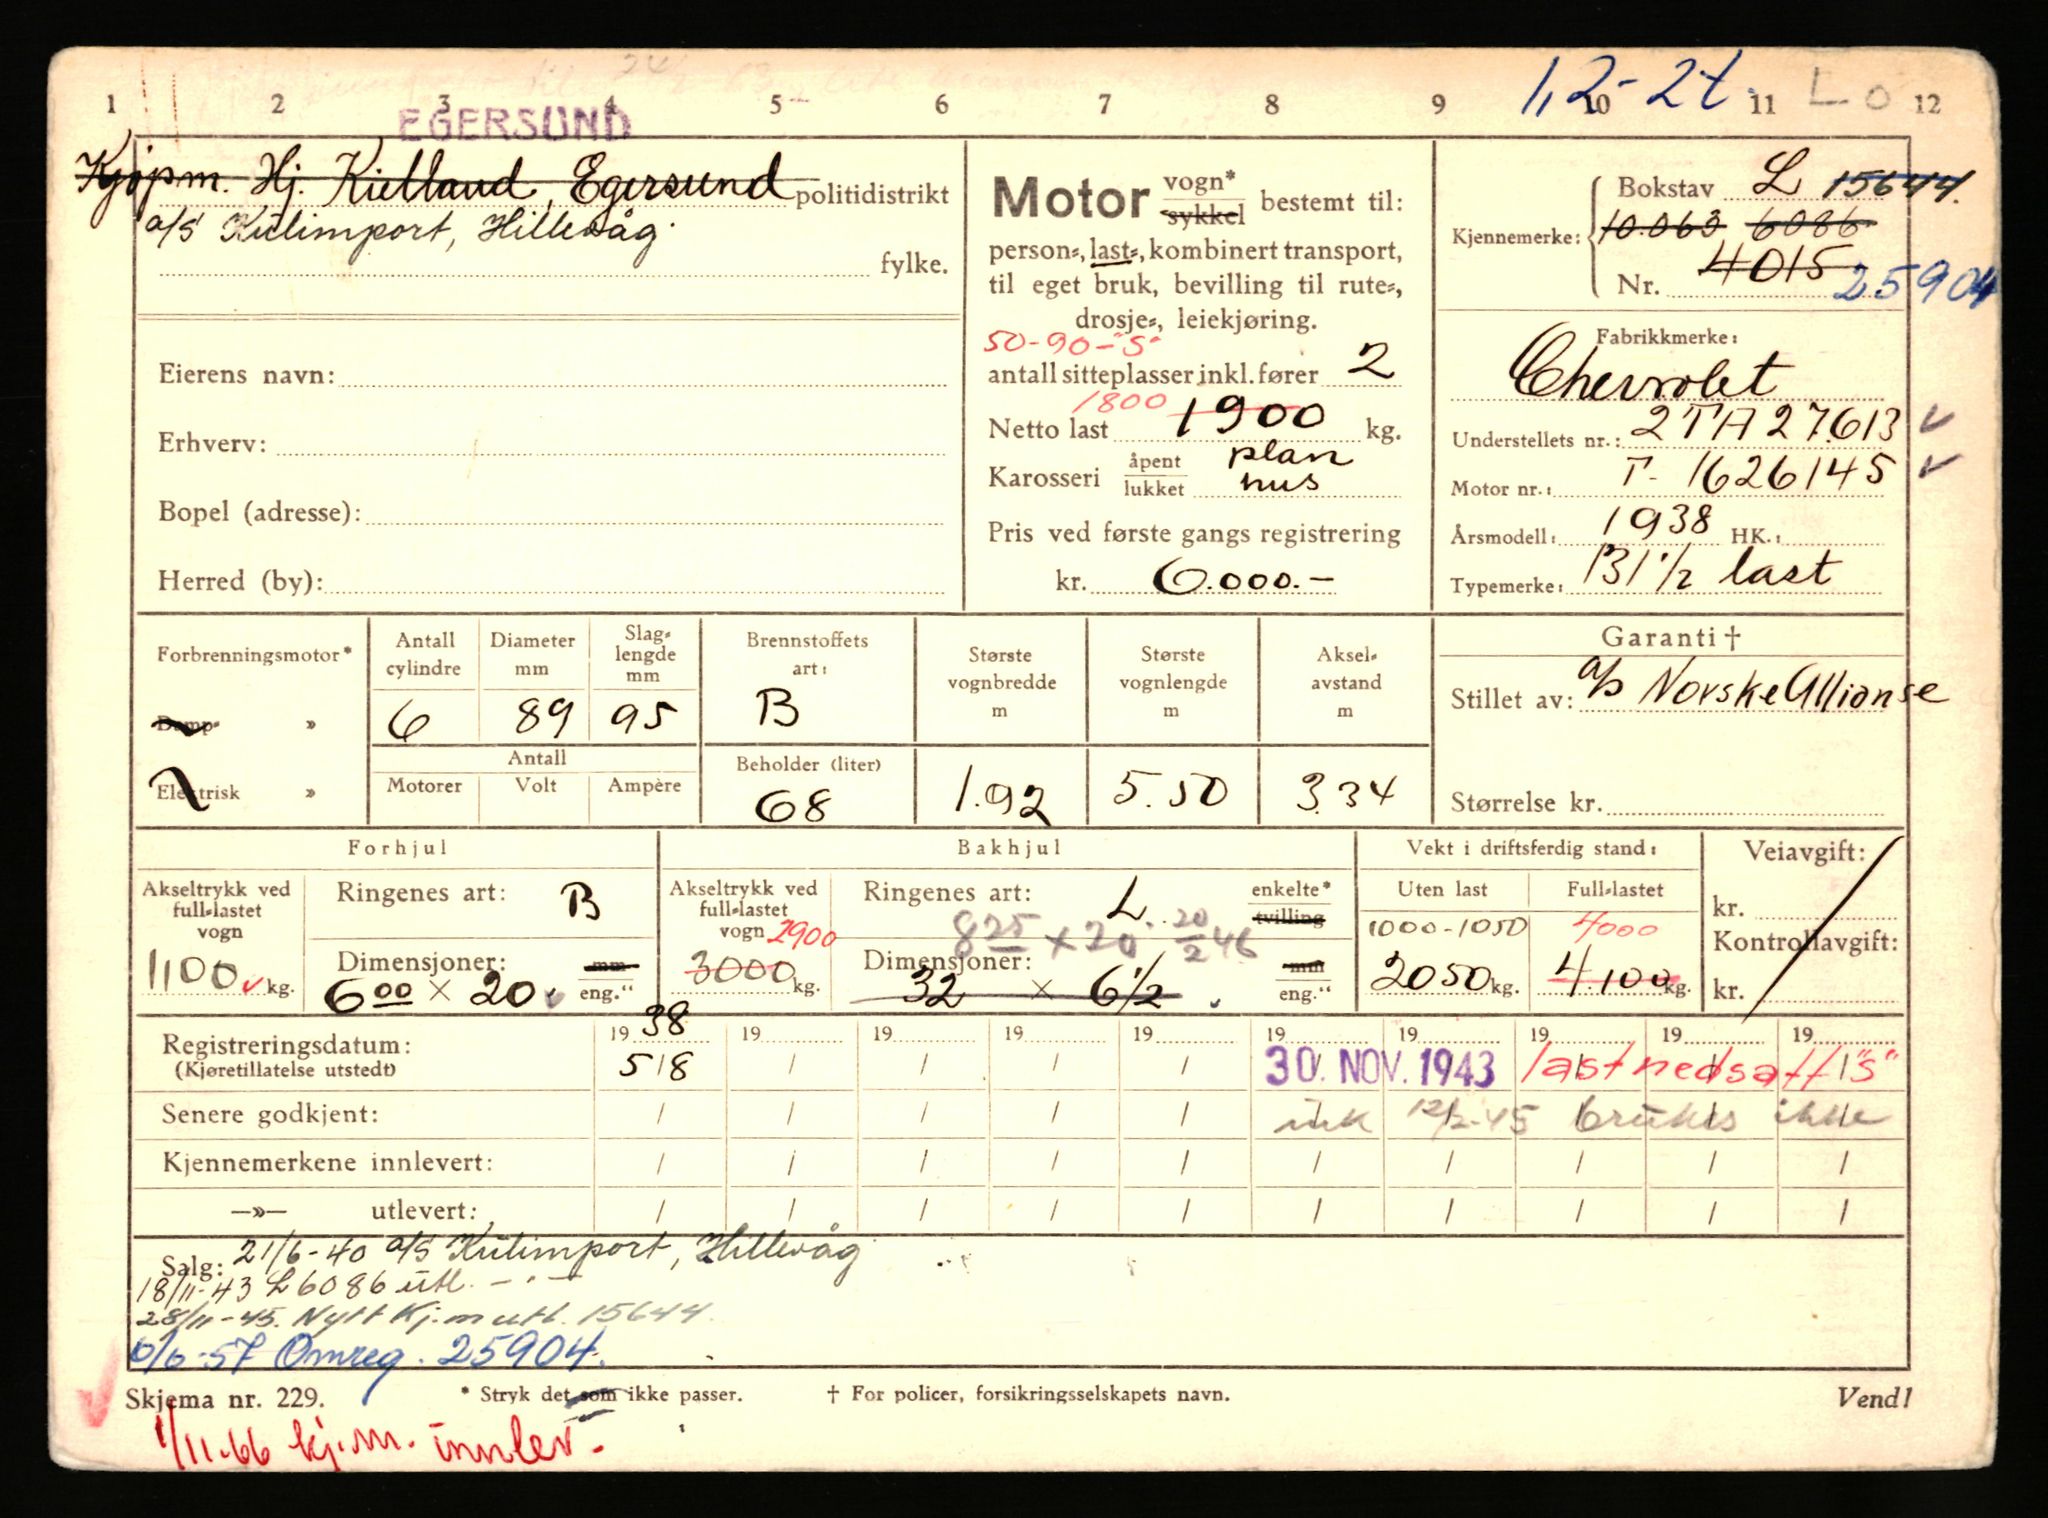 1,2-2t. L o
1 2 3 4 5 6 7 8 9 10 11 12
EGERSUND
Kjøpm. Hj. Kielland, Egersund politidistrikt
a/s Kulimport, Hillevåg.
fylke.
Eierens navn:
Erhverv:
Bopel (adresse):
Herred (by):
Motor vogn* sykkel bestemt til:
person-, last-, kombinert transport,
til eget bruk, bevilling til rute-,
drosje-, leiekjøring.
50-90-"S"
antall sitteplasser inkl. fører 2
1800
Netto last 1900 kg.
Karosseri åpent lukket plan hus
Pris ved første gangs registrering
kr. 6.000.-
Bokstav L 15644.
Kjennemerke: 10.063 6086
Nr. 4015 25904
Fabrikkmerke:
Chevrolet
Understellets nr.: 2TA27613
Motor nr.: T- 1626145
Årsmodell: 1938 HK.:
Typemerke: 131 1/2 last
Forbrenningsmotor*
Damp- »
Elektrisk »
Antall cylindre 6
Diameter mm 89
Slaglengde mm 95
Antall
Motorer Volt Ampère
Brennstoffets art: B
Beholder (liter) 68
Største vognbredde m 1.92
Største vognlengde m 5.50
Akselavstand m 3.34
Garanti †
Stillet av: a/s Norske Allianse
Størrelse kr.
Forhjul
Akseltrykk ved full-lastet vogn 1100 kg.
Ringenes art: B
Dimensjoner: 6 00 × 20 mm eng."
Bakhjul
Akseltrykk ved full-lastet vogn 2900
3000 kg.
Ringenes art: L enkelte* tvilling
8 25 × 20
Dimensjoner: 32 × 6 1/2 mm eng."
Vekt i driftsferdig stand:
Uten last Full-lastet
1000-1050 4000
2050 kg. 4100 kg.
Veiavgift:
kr.
Kontrollavgift:
kr.
19 38 19 19 19 19 19 19 19 19 19
Registreringsdatum:
(Kjøretillatelse utstedt)
5/8 30. NOV. 1943 last nedsatt "S"
Senere godkjent: ink 12/2-45 brukes ikke
Kjennemerkene innlevert:
—»— utlevert:
Salg: 21/6-40 a/s Kulimport, Hillevåg
18/11-43 L 6086 utl. -"-
28/11-45. Nytt Kj.m utl. 15644.
6/6-57 Omreg. 25904.
Skjema nr. 229. * Stryk det som ikke passer. † For policer, forsikringsselskapets navn. Vend!
1/11.66 kj.m. innlev.